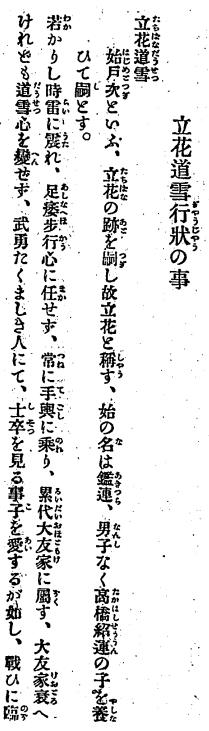 立花道雪行狀の事
立花道雪
始戸次といふ、立花の跡を嗣し故立花と稱す、始の名は鑑連、男子なく高橋紹運の子を養
ひて嗣とす。
若かりし時雷に震れ、足痿步行心に任せず、常に手輿に乘り、累代大友家に屬す、大友家衰へ
けれども道雪心を變せず、武勇たくましき人にて、士卒を見る事子を愛するが如し、戰ひに臨